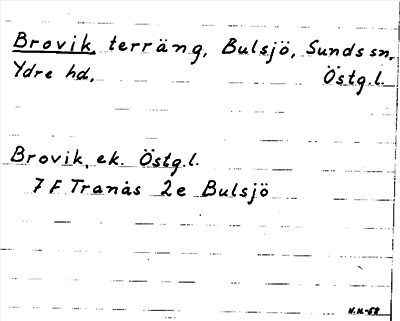 Brovik, terräng, Bulsjö, Sunds sn.
Ydre hd. Östg.l.
Brovik, ek. Östg.l.
7 F Tranås 2e Bulsjö
N.H.-58